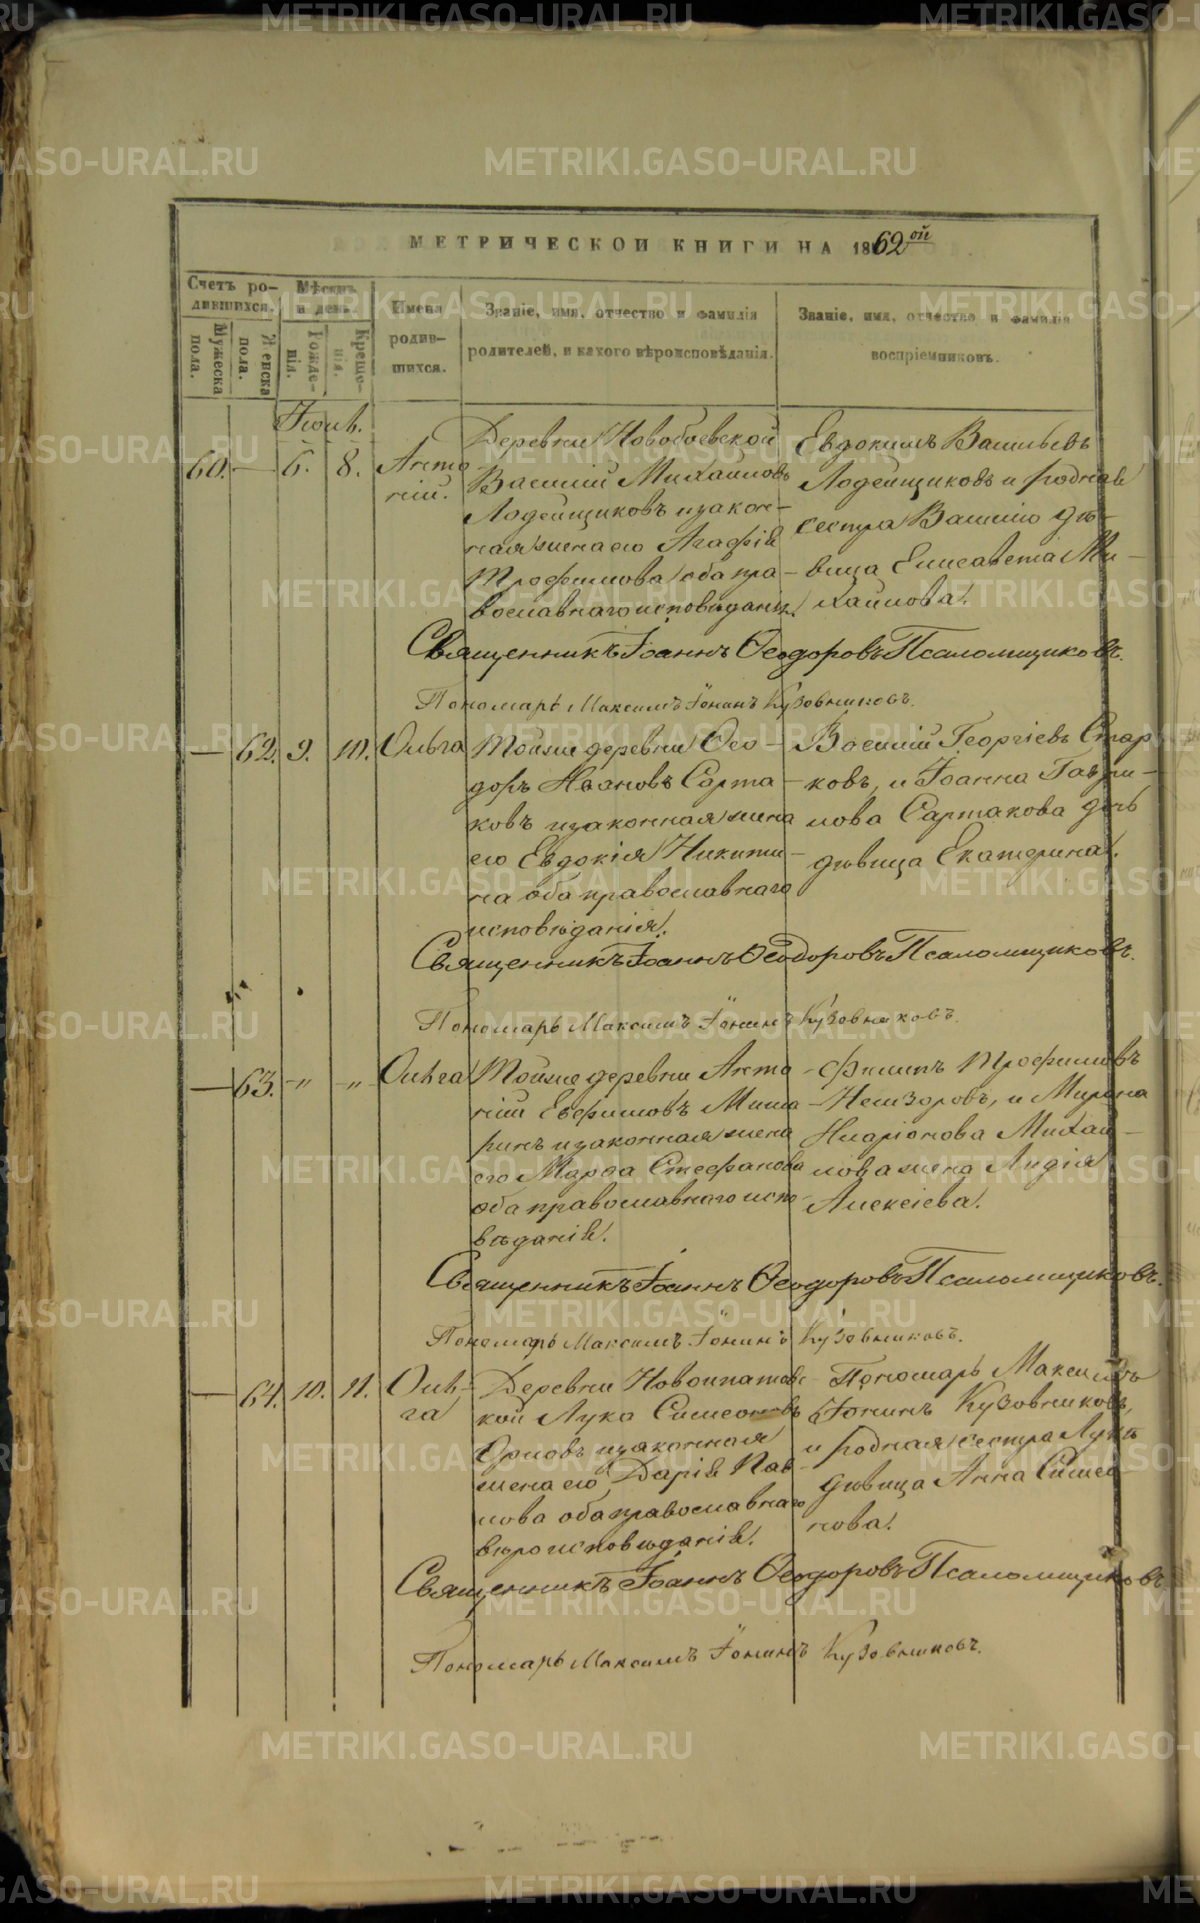 МЕТРИЧЕСКОЙ КНИГИ НА 1862ой
Счетъ ро-
дившихся.
Мѣсяцъ
и день.
Мужеска
пола.
Женска
пола.
Рожде-
нія.
Креще-
нія.
Имена
родив-
шихся.
Званіе, имя, отчество и фамилія
родителей, и какого вѣроисповѣданія.
Званіе, имя, отчество и фамилія
воспріемниковъ.
60. — 6. 8.
Анто
ній.
Деревни Новобоевской
Василій Михаиловъ
Лодейщиковъ и закон-
ная жена его Агафія
Трофимова оба пра-
вославнаго исповѣданія.
Евдокимъ Васильевъ
Лодейщиковъ и родная
сестра Василію дѣ-
вица Елисавета Ми-
хаилова.
Священникъ Іоаннъ Ѳеодоровъ Псаломщиковъ.
Пономарь Максимъ Іонинъ Кузовниковъ.
— 62. 9. 10. Ольга
Тойже деревни Ѳео-
доръ Ивановъ Сарта-
ковъ и законная жена
его Евдокія Никити-
на оба православнаго
исповѣданія.
Василій Георгіевъ Стар
ковъ, и Іоанна Гаври-
лова Сартакова дочь
дѣвица Екатерина.
Священникъ Іоаннъ Ѳеодоровъ Псаломщиковъ.
Пономарь Максимъ Іонинъ Кузовниковъ.
— 63. -"- -"- Ольга
Тойже деревни Анто
ній Евфимовъ Миша
ринъ и законная жена
его Марѳа Стефанова
оба православнаго испо-
вѣданія.
Филипъ Трофимовъ
Нешзоровъ, и Мирона
Иларіонова Михаи-
лова жена Лидія
Алексіева.
Священникъ Іоаннъ Ѳеодоровъ Псаломщиковъ.
Пономарь Максимъ Іонинъ Кузовниковъ.
— 64. 10. 11.
Оль-
га
Деревни Новоипатовс-
кой Лука Симеоновъ
Орловъ и законная
жена его Дарія Пав-
лова оба православнаго
вѣроисповѣданія.
Пономарь Максимъ
Іонинъ Кузовниковъ,
и родная сестра Лукѣ
дѣвица Анна Симео-
нова.
Священникъ Іоаннъ Ѳеодоровъ Псаломщиковъ.
Пономарь Максимъ Іонинъ Кузовниковъ.
METRIKI.GASO-URAL.RU